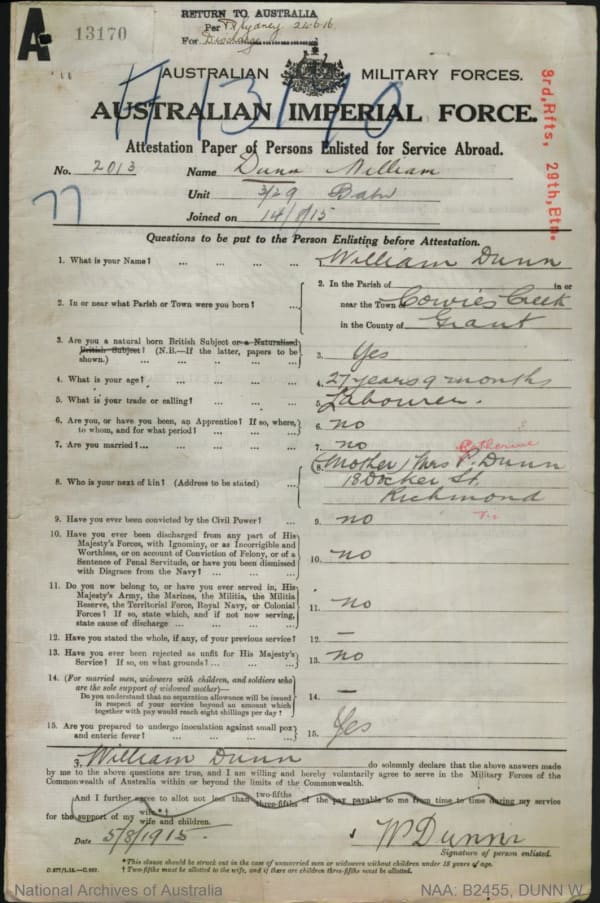 A
13170
RETURN TO AUSTRALIA
Per
For Discharge
AUSTRALIAN MILITARY FORCES.
AUSTRALIAN IMPERIAL FORCE.
Attestation Paper of Persons Enlisted for Service Abroad.
No. 2013 Name Dunn William
Unit 3/29 Batn
Joined on 14/8/15
3rd, Rfts, 29th, Btn.
77
Questions to be put to the Person Enlisting before Attestation.
1. What is your Name? ... ... ... ... 1. William Dunn
2. In or near what Parish or Town were you born? ... 2. In the Parish of in or
near the Town of Cowies Creek
in the County of Grant
3. Are you a natural born British Subject or a Naturalised
British Subject? (N.B.—If the latter, papers to be
shown.) ... ... ... ... 3. Yes
4. What is your age? ... ... ... ... 4. 27 years 9 months
5. What is your trade or calling? ... ... ... 5. Labourer.
6. Are you, or have you been, an Apprentice? If so, where,
to whom, and for what period? ... ... ... 6. no
7. Are you married? ... ... ... ... 7. no
Katherine
8. Who is your next of kin? (Address to be stated) ... 8. Mother Mrs P. Dunn
18 Docker St
Richmond
Vic
9. Have you ever been convicted by the Civil Power? ... 9. no
10. Have you ever been discharged from any part of His
Majesty's Forces, with Ignominy, or as Incorrigible and
Worthless, or on account of Conviction of Felony, or of a
Sentence of Penal Servitude, or have you been dismissed
with Disgrace from the Navy? ... ... ... 10. no
11. Do you now belong to, or have you ever served in, His
Majesty's Army, the Marines, the Militia, the Militia
Reserve, the Territorial Force, Royal Navy, or Colonial
Forces? If so, state which, and if not now serving,
state cause of discharge ... ... ... ... 11. no
12. Have you stated the whole, if any, of your previous service? 12. —
13. Have you ever been rejected as unfit for His Majesty's
Service? If so, on what grounds? ... ... ... 13. no
14. (For married men, widowers with children, and soldiers who
are the sole support of widowed mother)—
Do you understand that no separation allowance will be issued
in respect of your service beyond an amount which
together with pay would reach eight shillings per day? 14. —
15. Are you prepared to undergo inoculation against small pox
and enteric fever? ... ... ... ... 15. Yes
I, William Dunn do solemnly declare that the above answers made
by me to the above questions are true, and I am willing and hereby voluntarily agree to serve in the Military Forces of the
Commonwealth of Australia within or beyond the limits of the Commonwealth.
*And I further agree to allot not less than two-fifths
three-fifths of the pay payable to me from time to time during my service
for the support of my wife †
wife and children.
Date 5/8/1915. W Dunn
Signature of person enlisted.
*This clause should be struck out in the case of unmarried men or widowers without children under 18 years of age.
† Two-fifths must be allotted to the wife, and if there are children three-fifths must be allotted.
National Archives of Australia NAA: B2455, DUNN W